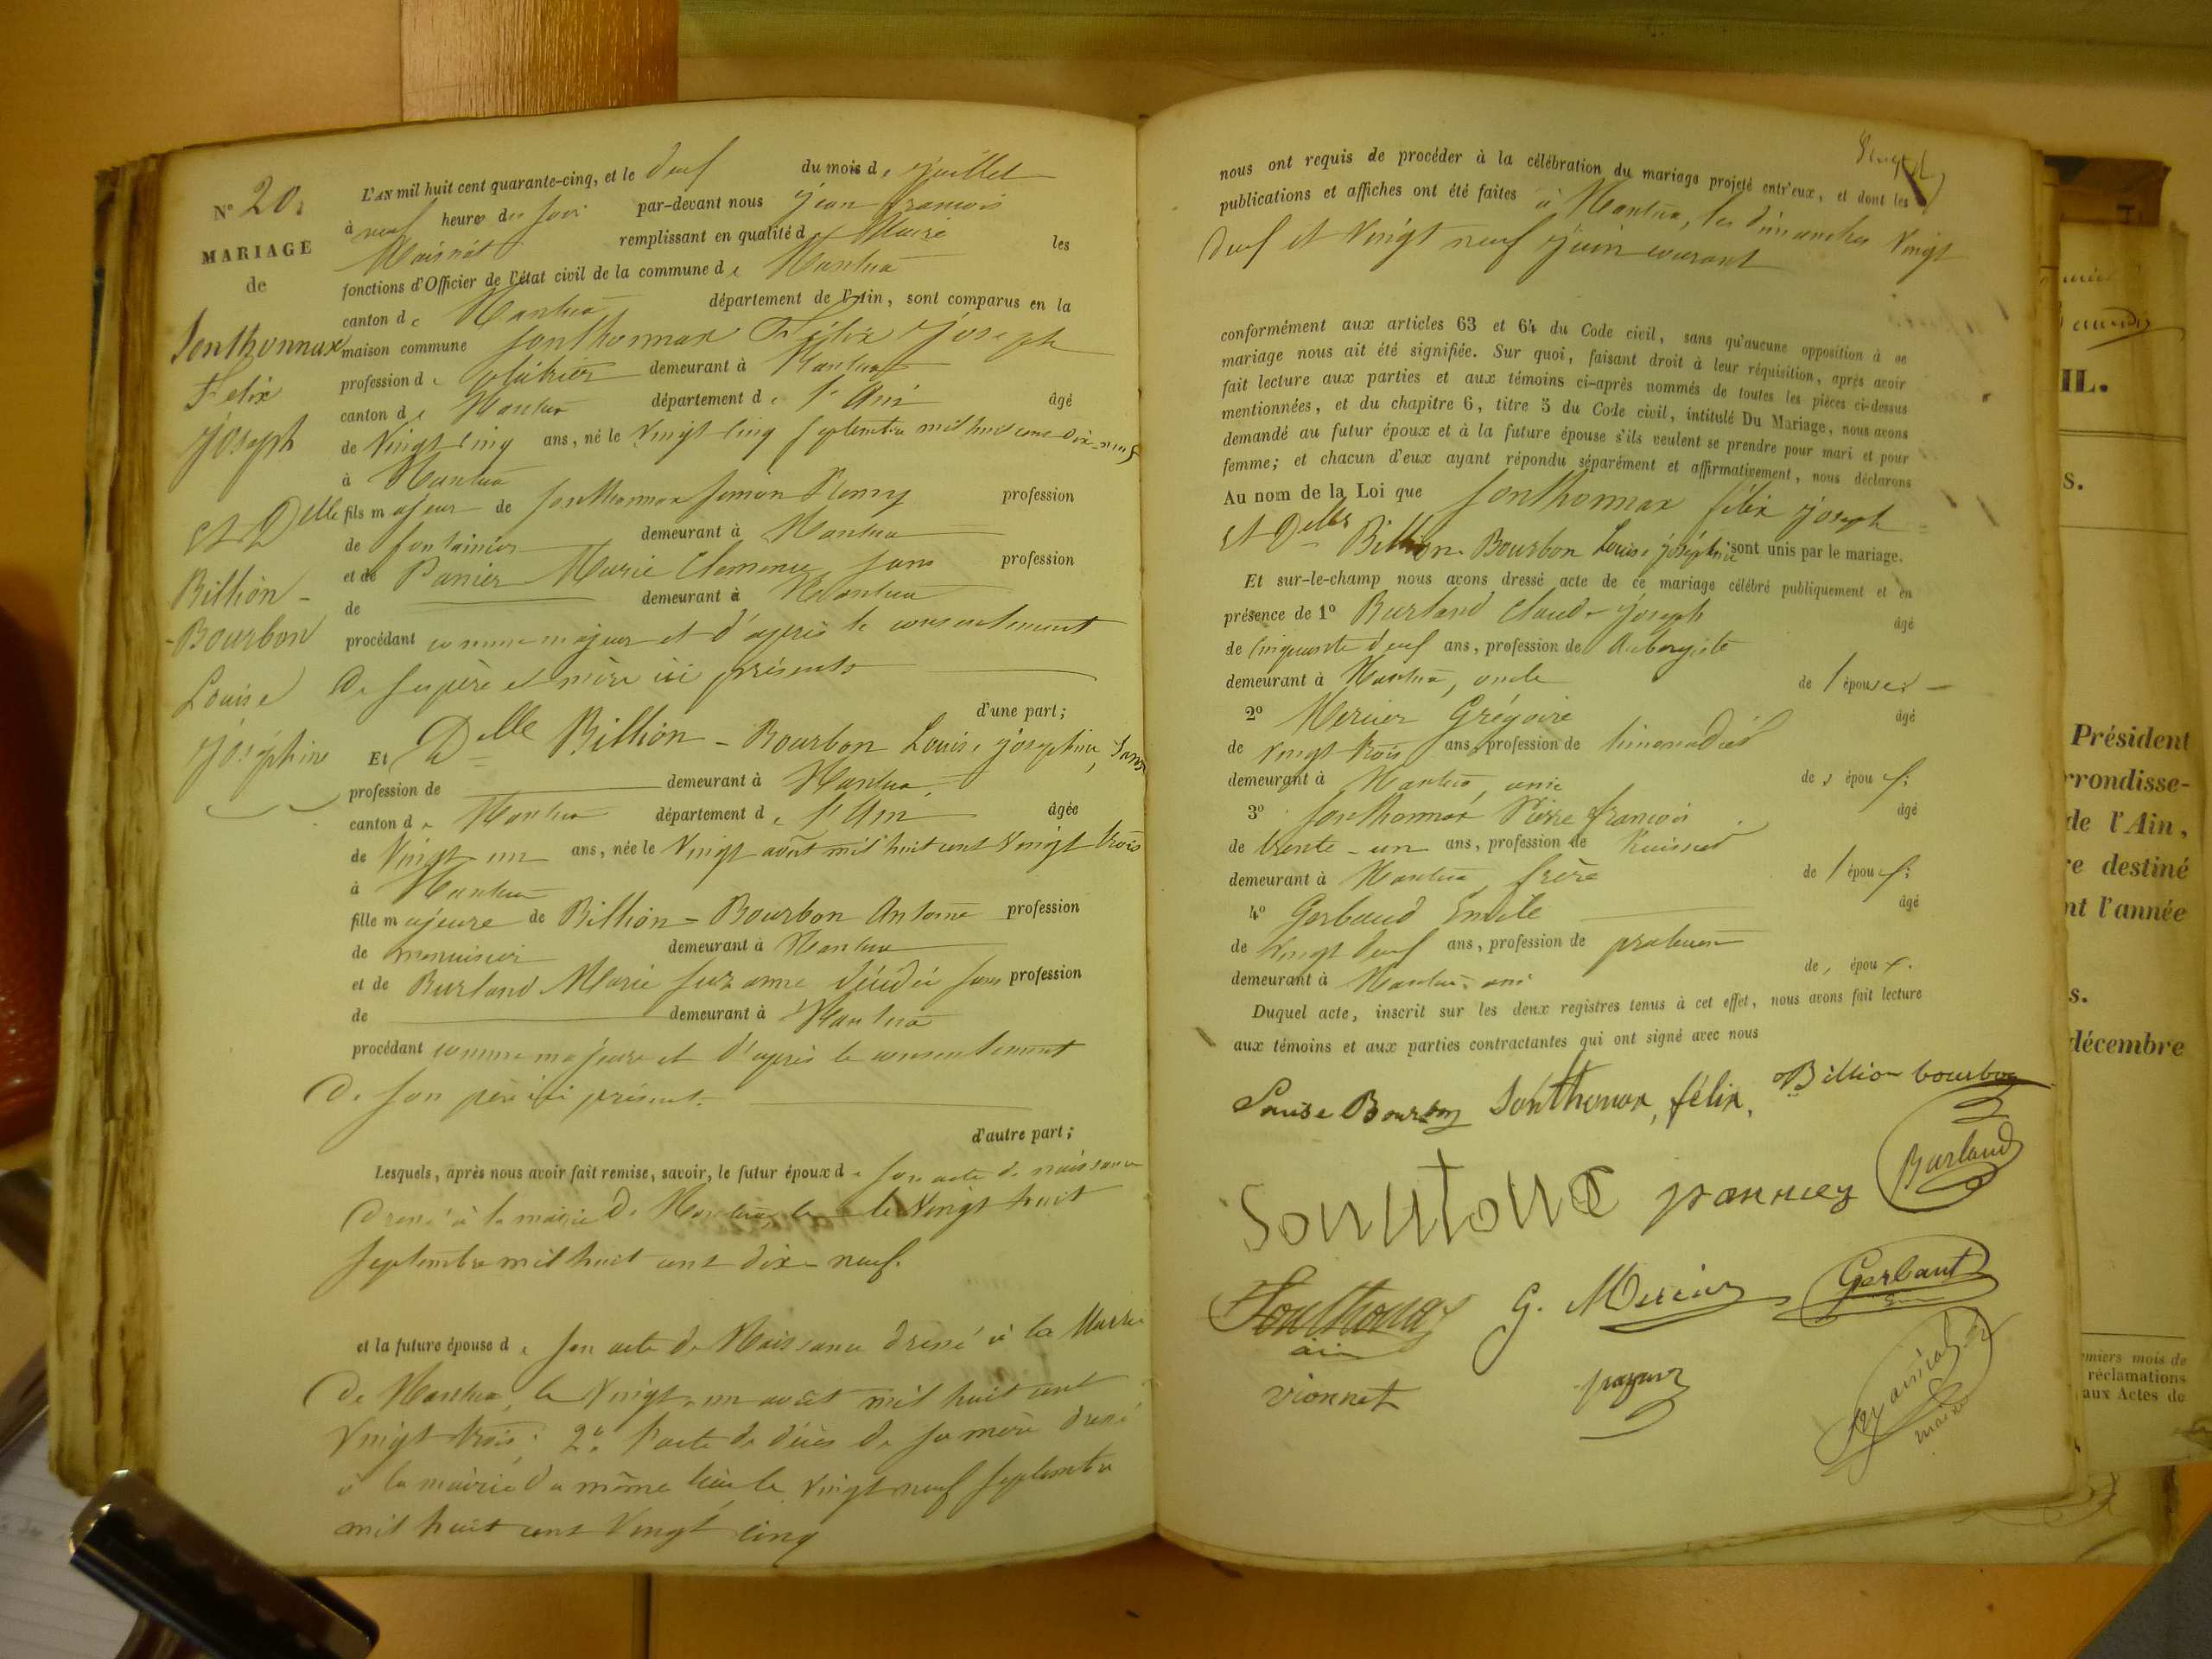 N° 20.
MARIAGE
de
Sonthonnax
Felix
Joseph
Et Delle
Billion-
-Bourbon
Louise
Joséphine
L'AN mil huit cent quarante-cinq, et le deux du mois de juillet
à neuf heures du soir par-devant nous jean francois
remplissant en qualité de Maire les
fonctions d'Officier de l'état civil de la commune de Nantua
canton de Nantua département de l'Ain, sont comparus en la
maison commune Sonthonnax Félix joseph
profession de plâtrier demeurant à Nantua
canton de Nantua département de l'Ain âgé
de vingt cinq ans, né le vingt cinq septembre mil huit cent dix-neuf
à Nantua
fils majeur de Sonthonnax Simon profession
de fontainier demeurant à Nantua
et de Panier Marie Clemence sans profession
de demeurant à Nantua
procédant comme majeur et d'après le consentement
de ses père et mère ici présents
d'une part;
Et Delle Billion-Bourbon Louise josephine, sans
profession de demeurant à Nantua
canton de Nantua département de l'Ain âgée
de Vingt-un ans, née le vingt août mil huit cent vingt trois
à Nantua
fille majeure de Billion-Bourbon Antoine profession
de menuisier demeurant à Nantua
et de Burland Marie Suzanne décédée sans profession
de demeurant à Nantua
procédant comme majeure et d'après le consentement
de son père ici présent.
d'autre part;
Lesquels, après nous avoir fait remise, savoir, le futur époux de son acte de naissance
dressé à la mairie de Nantua le vingt huit
septembre mil huit cent dix-neuf.
et la future épouse de son acte de Naissance dressé à la Mairie
de Nantua, le vingt-un août mil huit cent
vingt trois; 2° l'acte de décès de sa mère dressé
à la mairie du même lieu le vingt neuf septembre
mil huit cent vingt cinq
nous ont requis de procéder à la célébration du mariage projeté entr'eux, et dont les
publications et affiches ont été faites à Nantua, les dimanches vingt
deux et vingt neuf juin courant
conformément aux articles 63 et 64 du Code civil, sans qu'aucune opposition à ce
mariage nous ait été signifiée. Sur quoi, faisant droit à leur réquisition, après avoir
fait lecture aux parties et aux témoins ci-après nommés de toutes les pièces ci-dessus
mentionnées, et du chapitre 6, titre 5 du Code civil, intitulé Du Mariage, nous avons
demandé au futur époux et à la future épouse s'ils veulent se prendre pour mari et pour
femme; et chacun d'eux ayant répondu séparément et affirmativement, nous déclarons
Au nom de la Loi que Sonthonnax félix joseph
et Delle Billion-Bourbon Louise joséphine sont unis par le mariage.
Et sur-le-champ nous avons dressé acte de ce mariage célébré publiquement et en
présence de 1° Burland Claude joseph âgé
de cinquante deux ans, profession de Aubergiste
demeurant à Nantua, oncle de l'épouse
2° Mercier Grégoire âgé
de vingt trois ans, profession de limonadier
demeurant à Nantua, ami de s époux
3° Sonthonnax Pierre françois âgé
de trente-un ans, profession de huissier
demeurant à Nantua, frère de l'époux
4° Gerbaud Emile âgé
de vingt deux ans, profession de praticien
demeurant à Nantua, ami de s époux
Duquel acte, inscrit sur les deux registres tenus à cet effet, nous avons fait lecture
aux témoins et aux parties contractantes qui ont signé avec nous
Louise Bourbon Sonthonax, félix, Billion bourbon
Burland
Sonthonax
G. Mercier
Gerbaut
vionnet
maire
IL.
s.
Président
rrondisse-
de l'Ain,
re destiné
nt l'année
s.
décembre
miers mois de
réclamations
aux Actes de